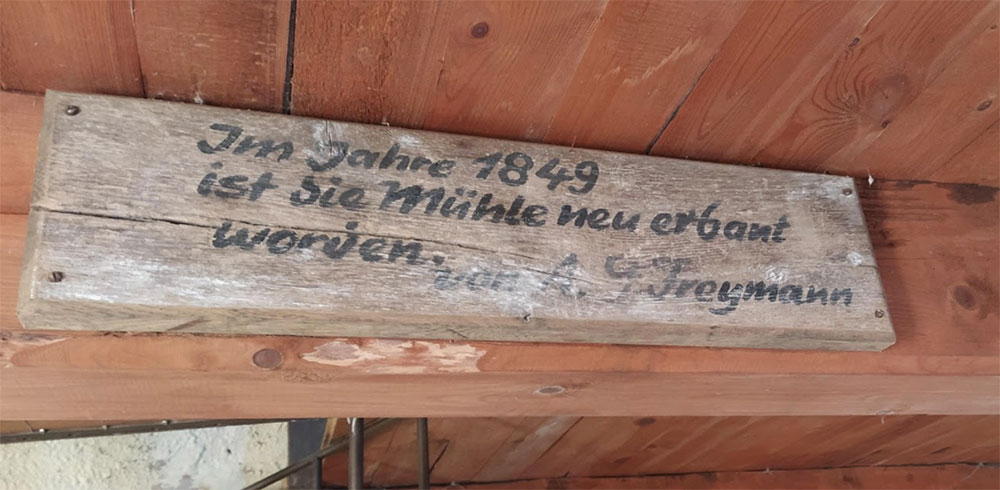 Im Jahre 1849
ist die Mühle neu erbaut
worden.
von A.